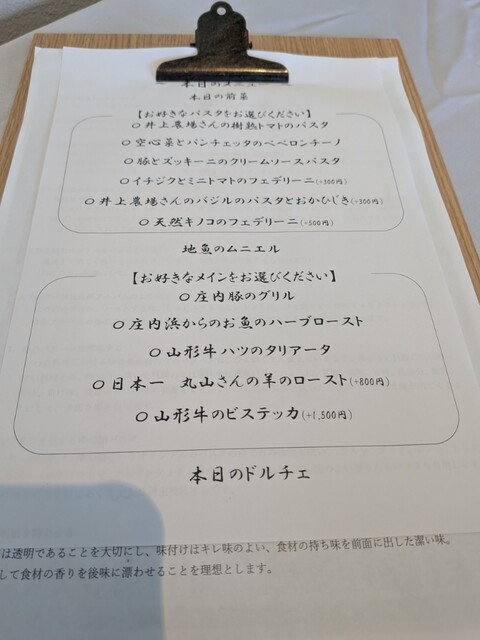 本日のメニュー
本日の前菜
【お好きなパスタをお選びください】
○井上農場さんの樹熟トマトのパスタ
○空心菜とパンチェッタのペペロンチーノ
○豚とズッキーニのクリームソースパスタ
○イチジクとミニトマトのフェデリーニ(+300円)
○井上農場さんのバジルのパスタとおかひじき(+300円)
○天然キノコのフェデリーニ(+500円)
地魚のムニエル
【お好きなメインをお選びください】
○庄内豚のグリル
○庄内浜からのお魚のハーブロースト
○山形牛ハツのタリアータ
○日本一 丸山さんの羊のロースト(+800円)
○山形牛のビステッカ(+1,500円)
本日のドルチェ
は透明であることを大切にし、味付けはキレ味のよい、食材の持ち味を前面に出した潔い味。
して食材の香りを後味に漂わせることを理想とします。